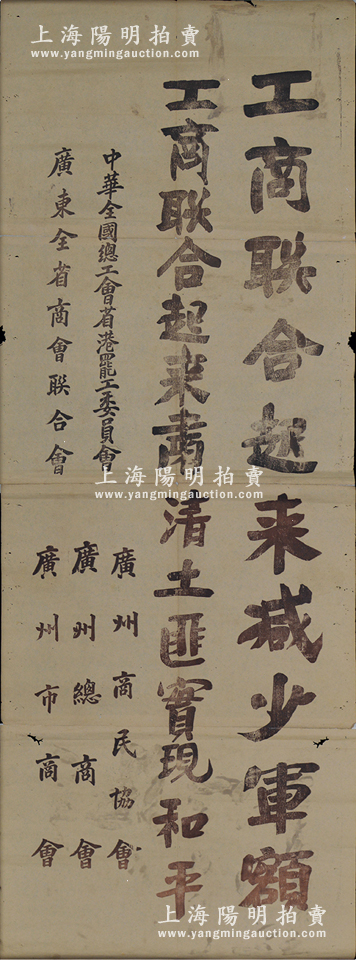 上海陽明拍賣
www.yangmingauction.com
工商聯合起来减少軍額
工商聯合起来肅清土匪實現和平
中華全國總工會省港罷工委員會
廣東全省商會联合會
廣州商民協會
廣州總商會
廣州市商會
上海陽明拍賣
www.yangmingauction.com
上海陽明拍賣
www.yangmingauction.com